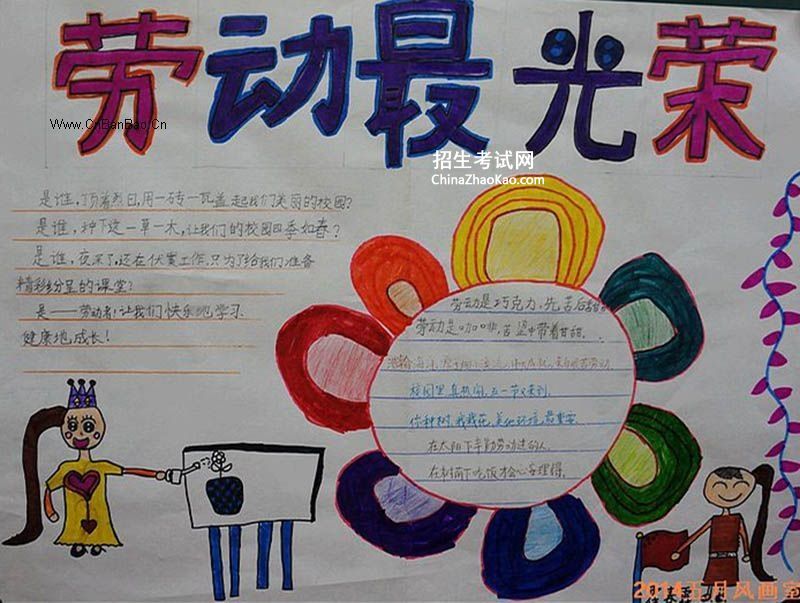 劳动最光荣
Www.CnBanBao.Cn
招生考试网
ChinaZhaoKao.com
是谁,顶着烈日,用一砖一瓦盖起我们美丽的校园?
是谁,种下这一草一木,让我们的校园四季如春?
是谁,夜深了,还在伏案工作,只为了给我们准备
精彩纷呈的课堂?
是——劳动者!让我们快乐地学习
健康地成长!
劳动是巧克力,先苦后
劳动是咖啡,苦涩中带着甘甜.
校园里真热闹,五一节又来到.
你种树,我栽花,美化环境最重要.
在太阳下辛勤劳动过的人,
在树荫下吃饭才会心安理得.
2014五月风画室